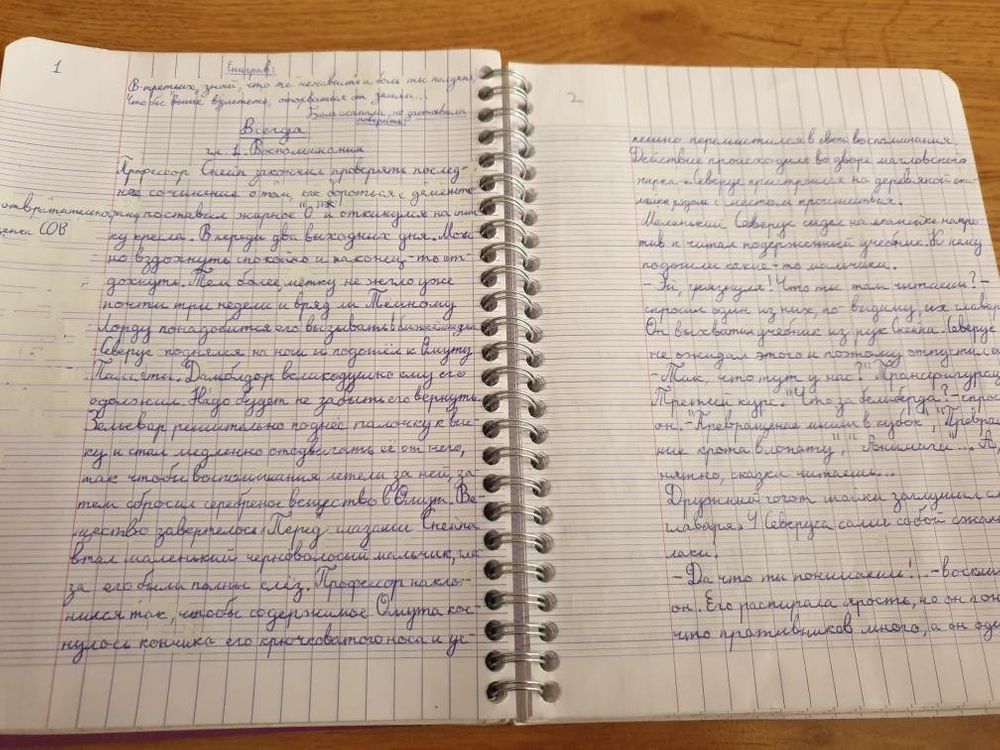 1
Эпиграф:
В-третьих, знай, что те ненависть и боль ты получил,
Чтобы выше взлететь, оторваться от земли...
Всегда
гл. 1. Воспоминания
Профессор Снейп закончил проверять послед-
нее сочинение о том, как бороться с дементо
поставил жирное "О"* и откинулся на спин
ку кресла. Впереди два выходных дня. Мож
но вздохнуть спокойно и наконец-то от-
дохнуть. Тем более метку не жгло уже
почти три недели и вряд ли Темному
Лорду понадобится его вызывать в
Северус поднялся на ноги и подошёл к Омуту
Памяти. Дамблдор великодушно ему его
одолжил. Надо будет не забыть его вернуть.
Зельевар решительно поднёс палочку к вис
ку и стал медленно отодвигать её от него,
так чтобы воспоминания летели за ней, за
тем сбросил серебреное вещество в Омут. Ве-
щество завертелось. Перед глазами Снейпа
встал маленький черноволосый мальчик, гла
за его были полны слёз. Профессор накло-
нился так, чтобы содержимое Омута кос-
нулось кончика его крючковатого носа и ус-
отвратительно
енка СОВ
2
пешно переместился в свои воспоминания.
Действие происходило во дворе магловского
парка. Северус пристроился на деревянной ска-
мейке рядом с местом происшествия.
Маленький Северус сидел на скамейке напро-
тив и читал подержанный учебник. К нему
подошли какие-то мальчики.
- Эй, грязнуля! Что ты там читаешь? -
спросил один из них, по-видимому, их главар
Он выхватил учебник из рук Снейпа. Северус
не ожидал этого и поэтому отпустил е
- Так, что тут у нас? "Трансфигурац
Третий курс." Что за белиберда? - спрос
он. - "Превращение мыши в кубок", "Превращ
ние крота в лопату", "Анимаги"... А,
нятно, сказки читаем...
Дружный гогот шайки заглушил сл
главаря. У Северуса сами собой сжал
лаки.
- Да что ты понимаешь!.. - воскли
он. Его распирала ярость, но он пон
что противников много, а он оди